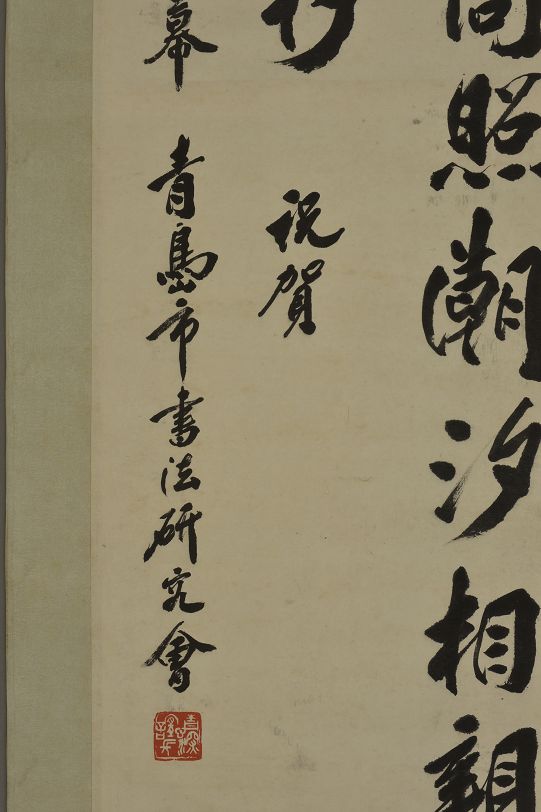 照潮汐相親
祝賀
幕 青島市書法研究會